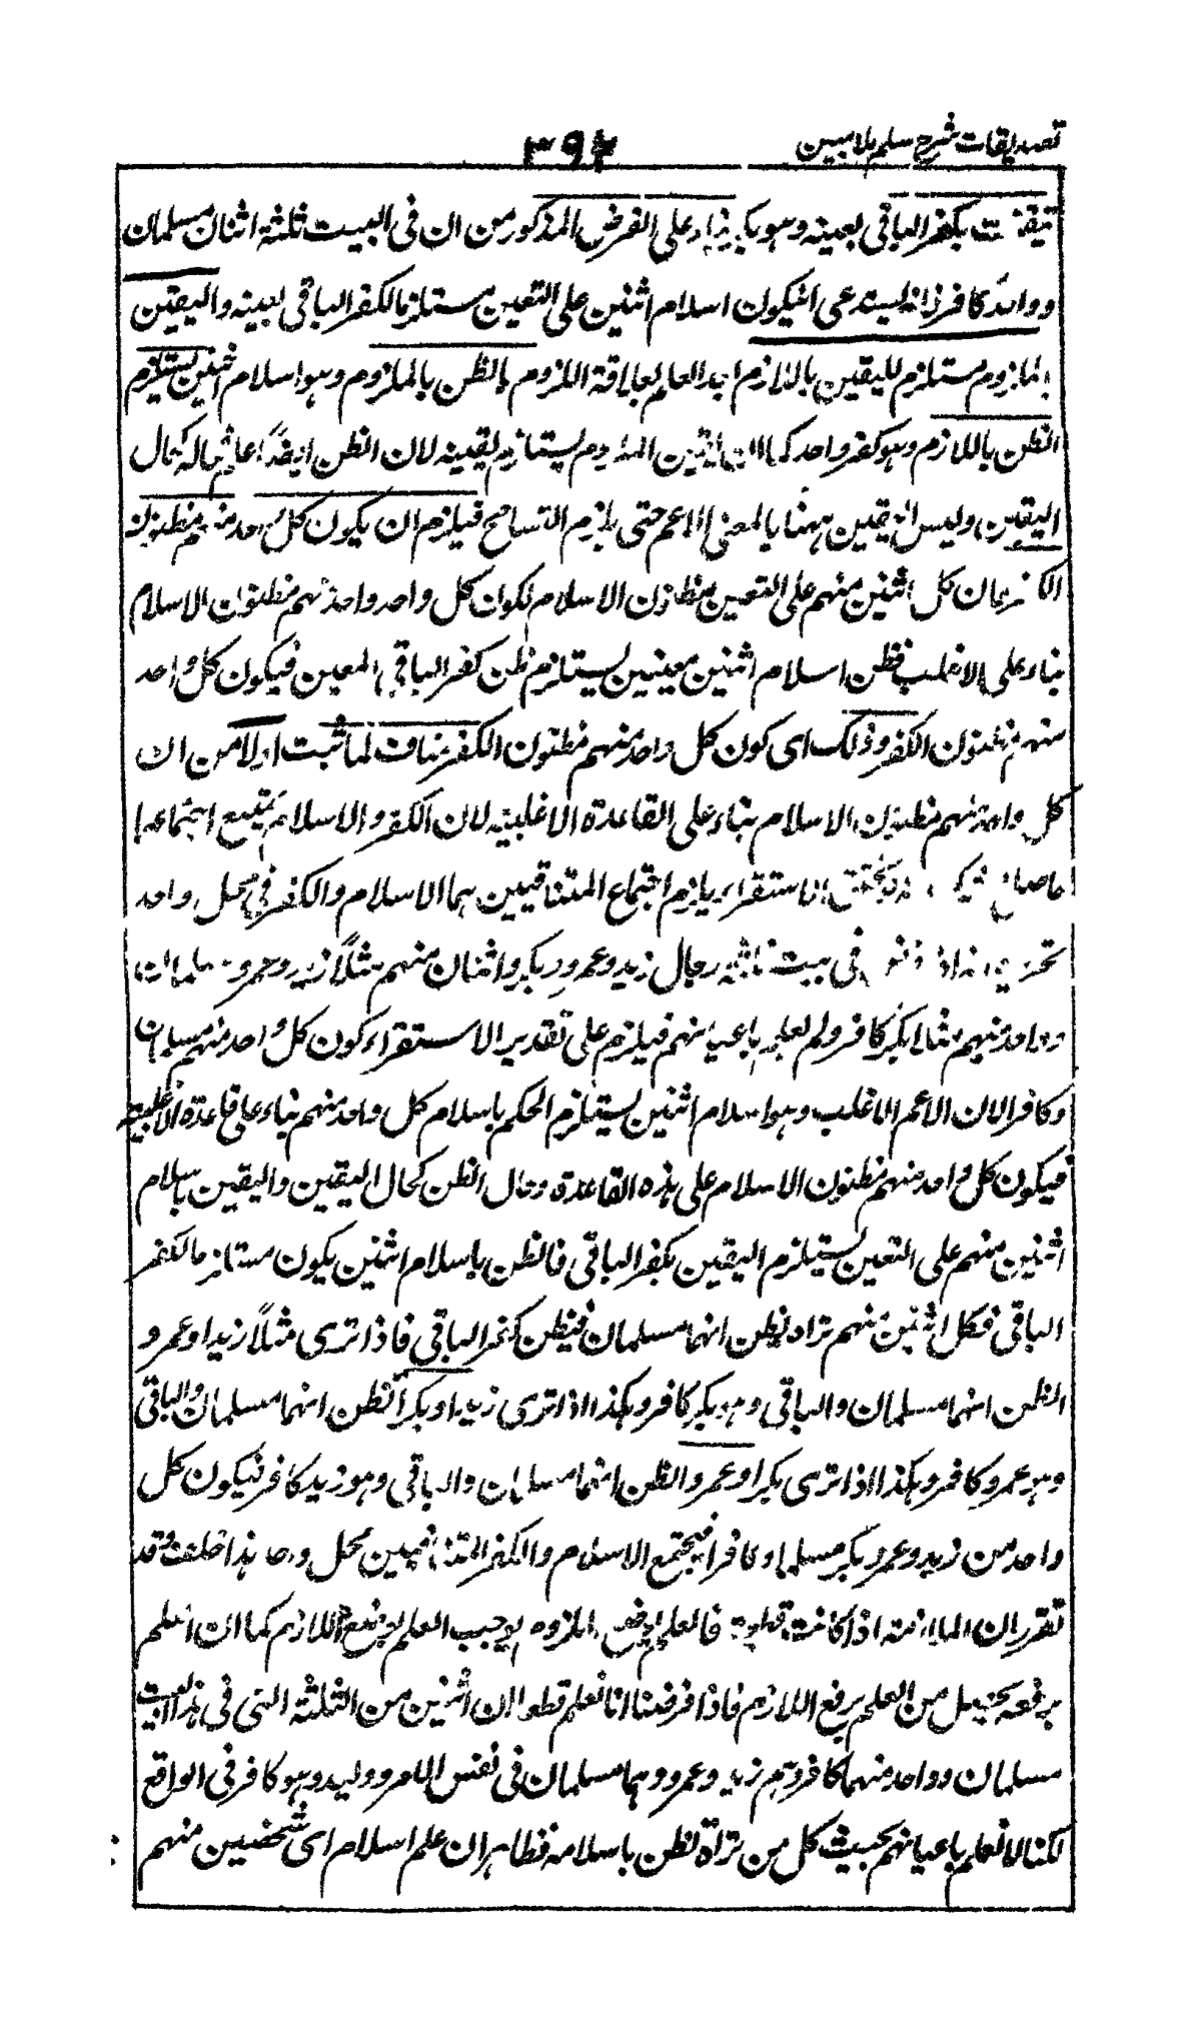 تصديقات شرح سلم ملا مبين
٣٩٢
تيقنت بكفر الباقي بعينه وهو بكر بناء على الفرض المذكور من ان في البيت ثلثة اثنان مسلمان
وواحد كافر فانه يستدعى ان يكون اسلام اثنين على التعين مستلزما لكفر الباقي بعينه واليقين
بالملزوم مستلزم لليقين باللازم بعد العلم بعلاقة اللزوم والظن بالملزوم وهو اسلام اثنين يستلزم
الظن باللازم وهو كفر واحد كما ان اليقين الملزوم يستلزم يقينه لان الظن ايضًا حاله كحال
اليقين وليس اليقين ههنا بالمعنى الاعم حتى يلزم التسامح فيلزم ان يكون كل واحد منهم مظنون
الكفر فان كل اثنين منهم على التعين مظنون الاسلام لكون كل واحد واحد منهم مظنون الاسلام
بناء على الاغلب فظن اسلام اثنين معينين يستلزم ظن كفر الباقي المعين فيكون كل واحد
منهم مظنون الكفر وذلك اى كون كل واحد منهم مظنون الكفر مناف لما ثبت اولا من ان
كل واحد منهم مظنون الاسلام بناء على القاعدة الاغلبية لان الكفر والاسلام يمتنع اجتماعهما
الاستقراء يلزم اجتماع المتنافيين هما الاسلام والكفر في محل واحد
في بيت ثلثة رجال زيد وعمرو وبكر واثنان منهم مثلاً زيد وعمرو مسلمان
وواحد منهم مثلا بكر كافر ولم نعلم باعيانهم فيلزم على تقدير الاستقراء كون كل واحد منهم مسلما
وكافرا لان الاعم الاغلب وهو اسلام اثنين يستلزم الحكم باسلام كل واحد منهم بناء على قاعدة الاغلبية
فيكون كل واحد منهم مظنون الاسلام على هذه القاعدة وحال الظن كحال اليقين واليقين باسلام
اثنين منهم على التعين يستلزم اليقين بكفر الباقي فالظن باسلام اثنين يكون مستلزما لكفر
الباقي فكل اثنين منهم تراه نظن انهما مسلمان فيظن كفر الباقي فاذا ترى مثلاً زيدا وعمرو
الظن انهما مسلمان والباقي وهو بكر كافر وهكذا اذا ترى زيدا وبكراً نظن انهما مسلمان والباقي
وهو عمرو كافر وهكذا اذا ترى بكرا وعمروا نظن انهما مسلمان والباقي وهو زيد كافر فيكون كل
واحد من زيد وعمرو وبكر مسلما وكافرا فيجتمع الاسلام والكفر المتنافيين محل واحد هذا خلف وقد
تقرر ان الملازمة اذا كانت قطعية فالعلم بوضع الملزوم يوجب العلم بوضع اللازم كما ان العلم
برفعه يحصل من العلم برفع اللازم فاذا فرضنا انا نعلم قطعا ان اثنين من الثلثة التي في هذا البيت
مسلمان وواحد منهما كافر وهم زيد وعمرو وهما مسلمان في نفس الامر ووليد وهو كافر في الواقع
لكنا لا نعلم باعيانهم بحيث كل من تراه نظن باسلامه فظاهر ان علم اسلام اى شخصين منهم